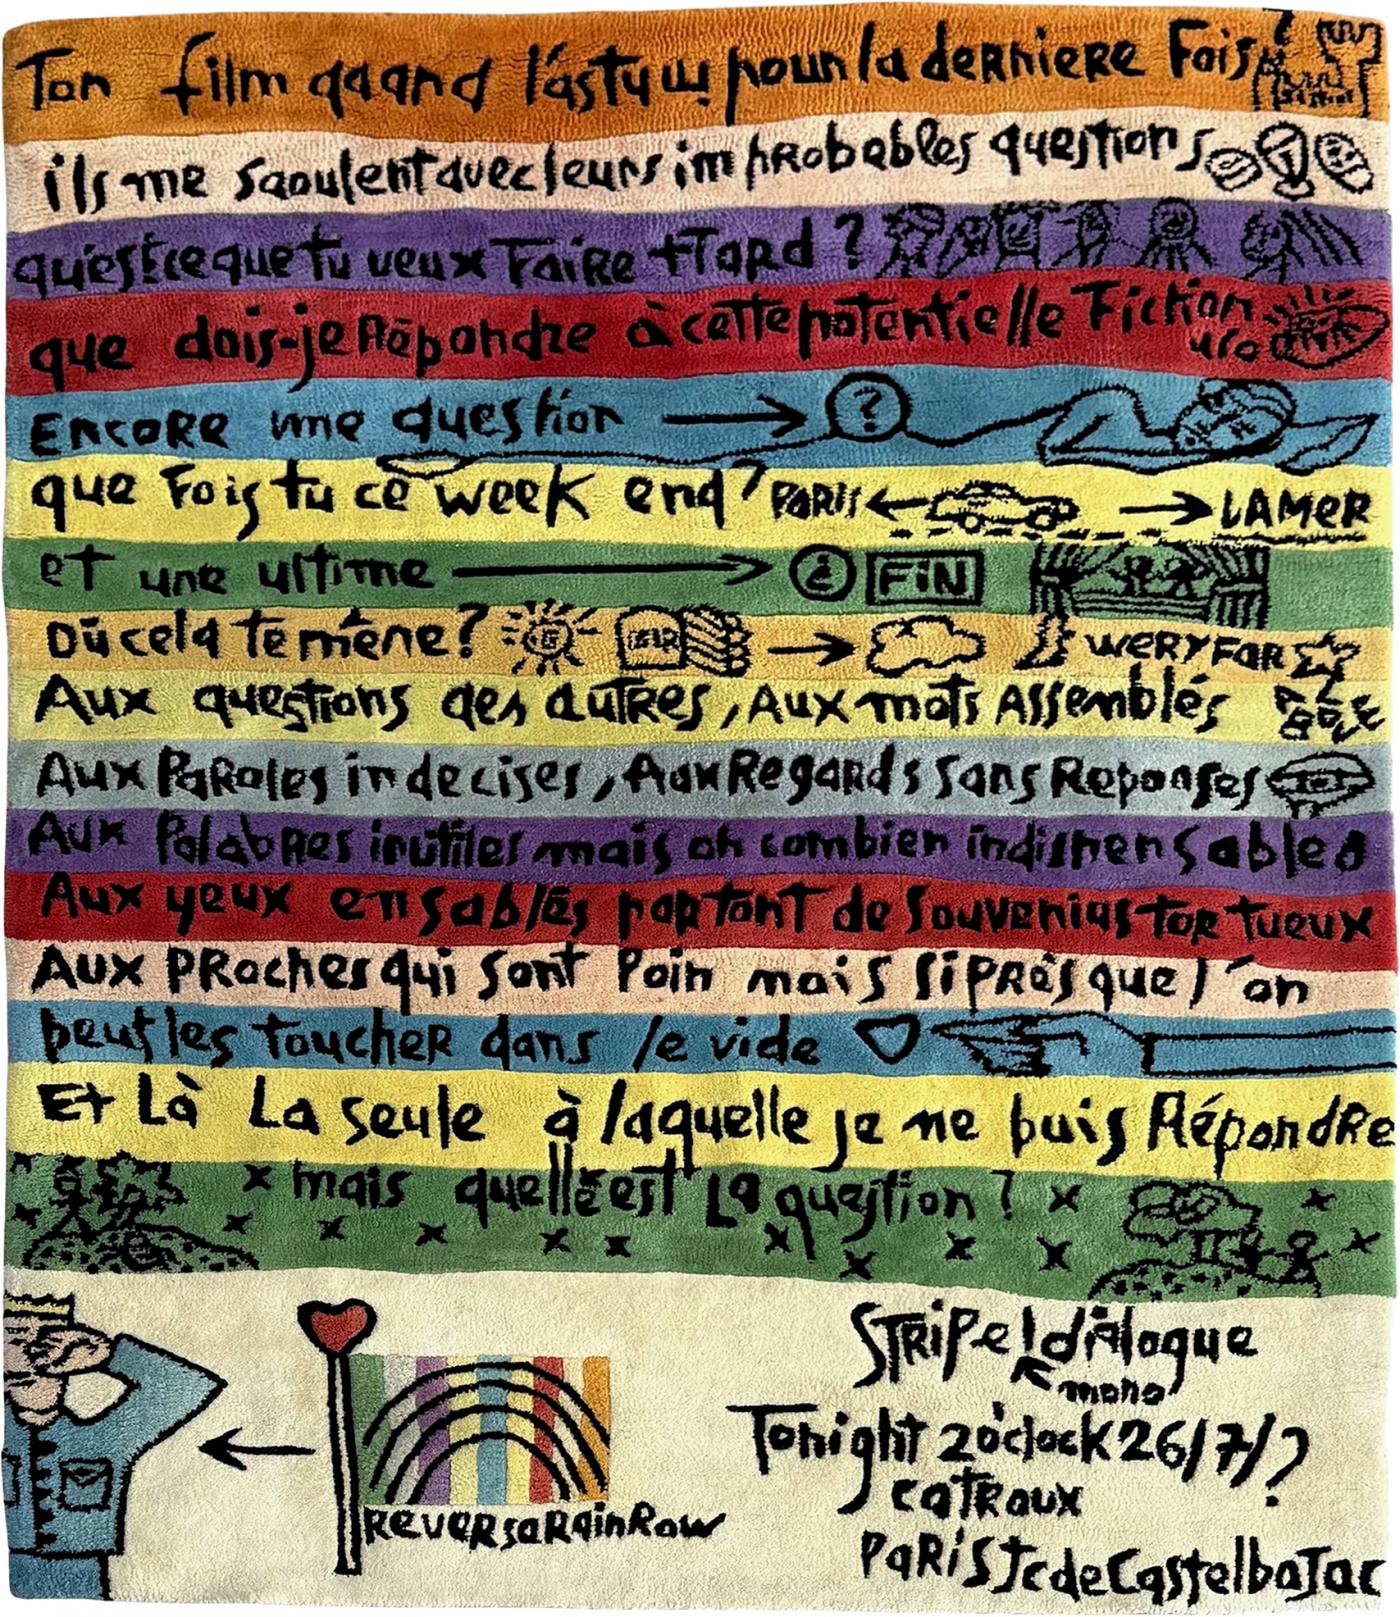 Ton film quand l'as tu vu pour la derniere Fois
ils me saoulent avec leurs improbables questions
qu'est ce que tu veux Faire +Tard ?
que dois-je Répondre à cette potentielle Fiction
Encore une question → ?
que Fais tu ce week end? PARIS ← → LAMER
et une ultime → ¿ FiN
Où cela te mène? → WERY FAR
Aux questions des autres, Aux mots Assemblés
Aux Paroles indecises, Aux Regards sans Reponses
Aux Palabres inutiles mais oh combien indispensables
Aux yeux ensablés partant de souvenirs tortueux
Aux PRoches qui sont loin mais si PRès que l'on
peut les toucher dans le vide
Et Là La seule à laquelle je ne puis Répondre
x mais quelle est La question? x
STRiPe! diAlogue
mono
Tonight 2o'clock 26/7/?
catRoux
PaRiS Jc de CastelbaJac
ReveRse RainBow